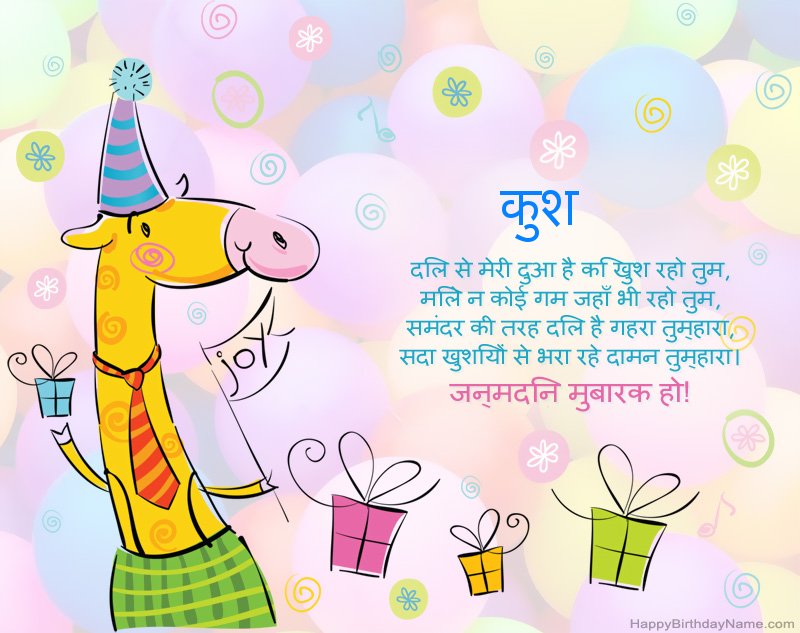 कुश
दलि से मेरी दुआ है कि खुश रहो तुम,
मलिे न कोई गम जहाँ भी रहो तुम,
समंदर की तरह दलि है गहरा तुम्हारा,
सदा खुशयिों से भरा रहे दामन तुम्हारा।
जन्मदनि मुबारक हो!
joy
HappyBirthdayName.com